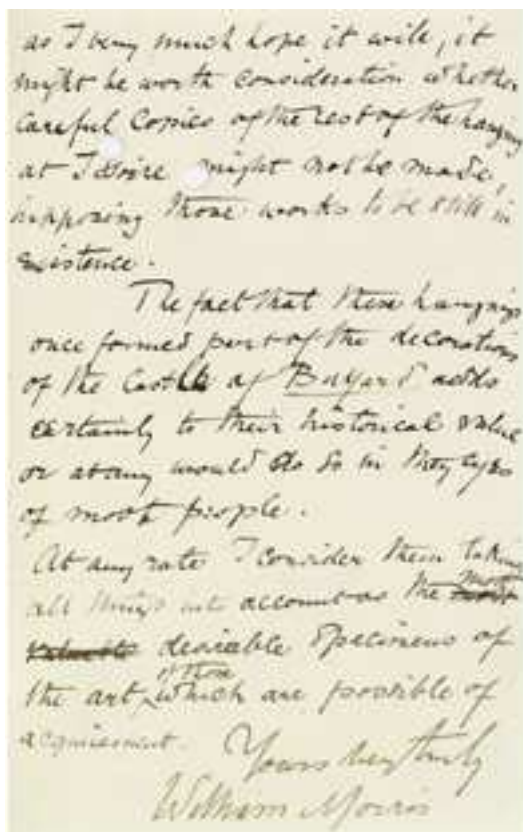 as I very much hope it will, it
might be worth consideration whether
careful copies of the rest of the hanging
at Issoire might not be made,
supposing those works to be still in
existence.
The fact that these hangings
once formed part of the decorations
of the Castle of Bayard adds
certainly to their historical value
or at any would do so in the eyes
of most people.
At any rate I consider them taking
all things into account as the most
desirable specimens of
the art, of those which are possible of
acquirement. Yours very truly
William Morris